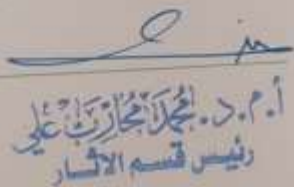 أ.م.د. محمد مجارب علي
رئيس قسم الآثار